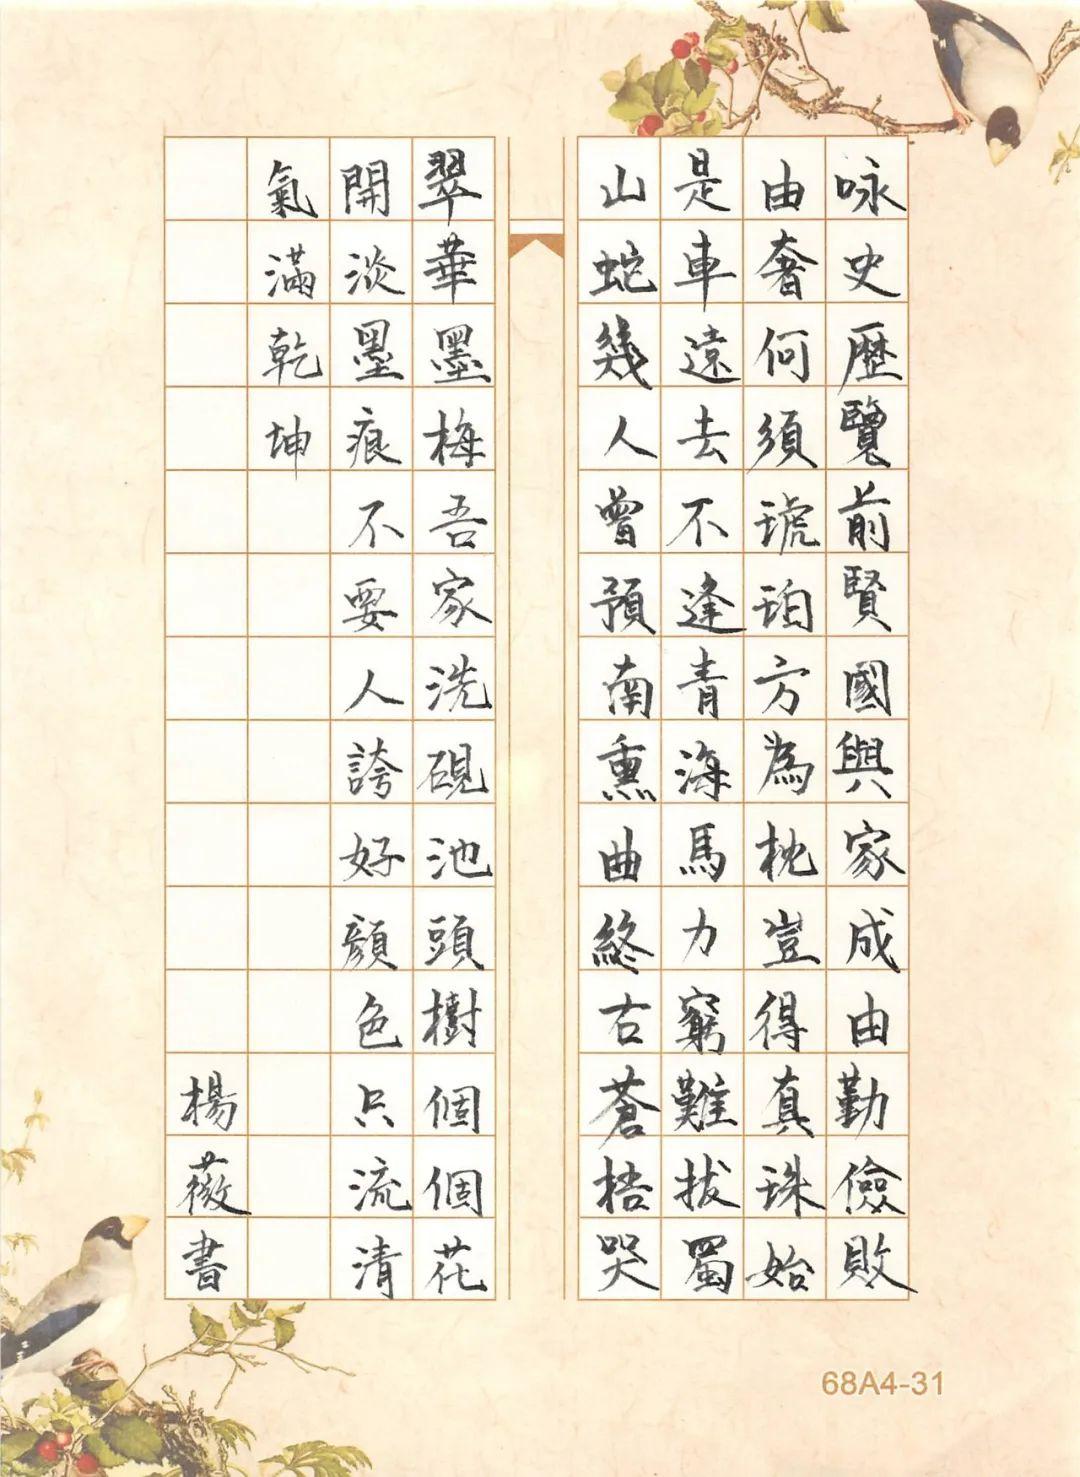 咏史歴覽前賢國與家成由勤儉敗
由奢何須琥珀方為枕豈得真珠始
是車遠去不逢青海馬力窮難拔蜀
山蛇幾人曾預南熏曲終古蒼梧哭
翠華墨梅吾家洗硯池頭樹個個花
開淡墨痕不要人誇好顏色只流清
氣滿乾坤
楊薇書
68A4-31